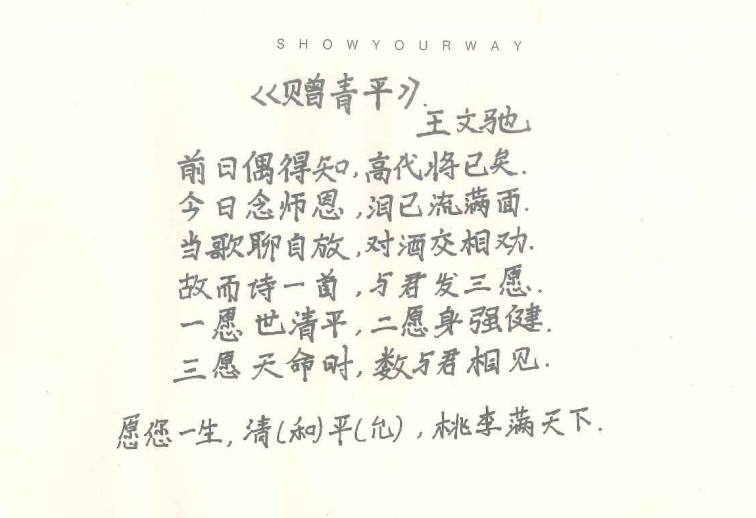 SHOWYOURWAY
《赠青平》.
王文驰
前日偶得知,高代将已矣.
今日念师恩,泪已流满面.
当歌聊自放,对酒交相劝.
故而诗一首,与君发三愿.
一愿世清平,二愿身强健.
三愿天命时,数与君相见.
愿您一生,清(和)平(允),桃李满天下.